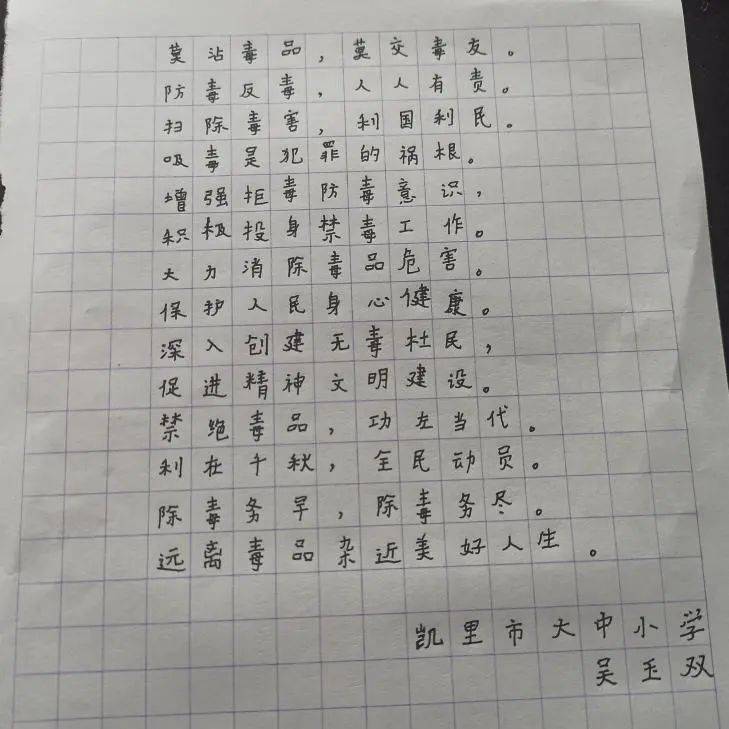 莫沾毒品，莫交毒友。
防毒反毒，人人有责。
扫除毒害，利国利民。
吸毒是犯罪的祸根。
增强拒毒防毒意识，
积极投身禁毒工作。
大力消除毒品危害。
保护人民身心健康。
深入创建无毒杜民，
促进精神文明建设。
禁绝毒品，功左当代。
利在千秋，全民动员。
除毒务早，除毒务尽。
远离毒品杂近美好人生。
凯里市大中小学
吴玉双